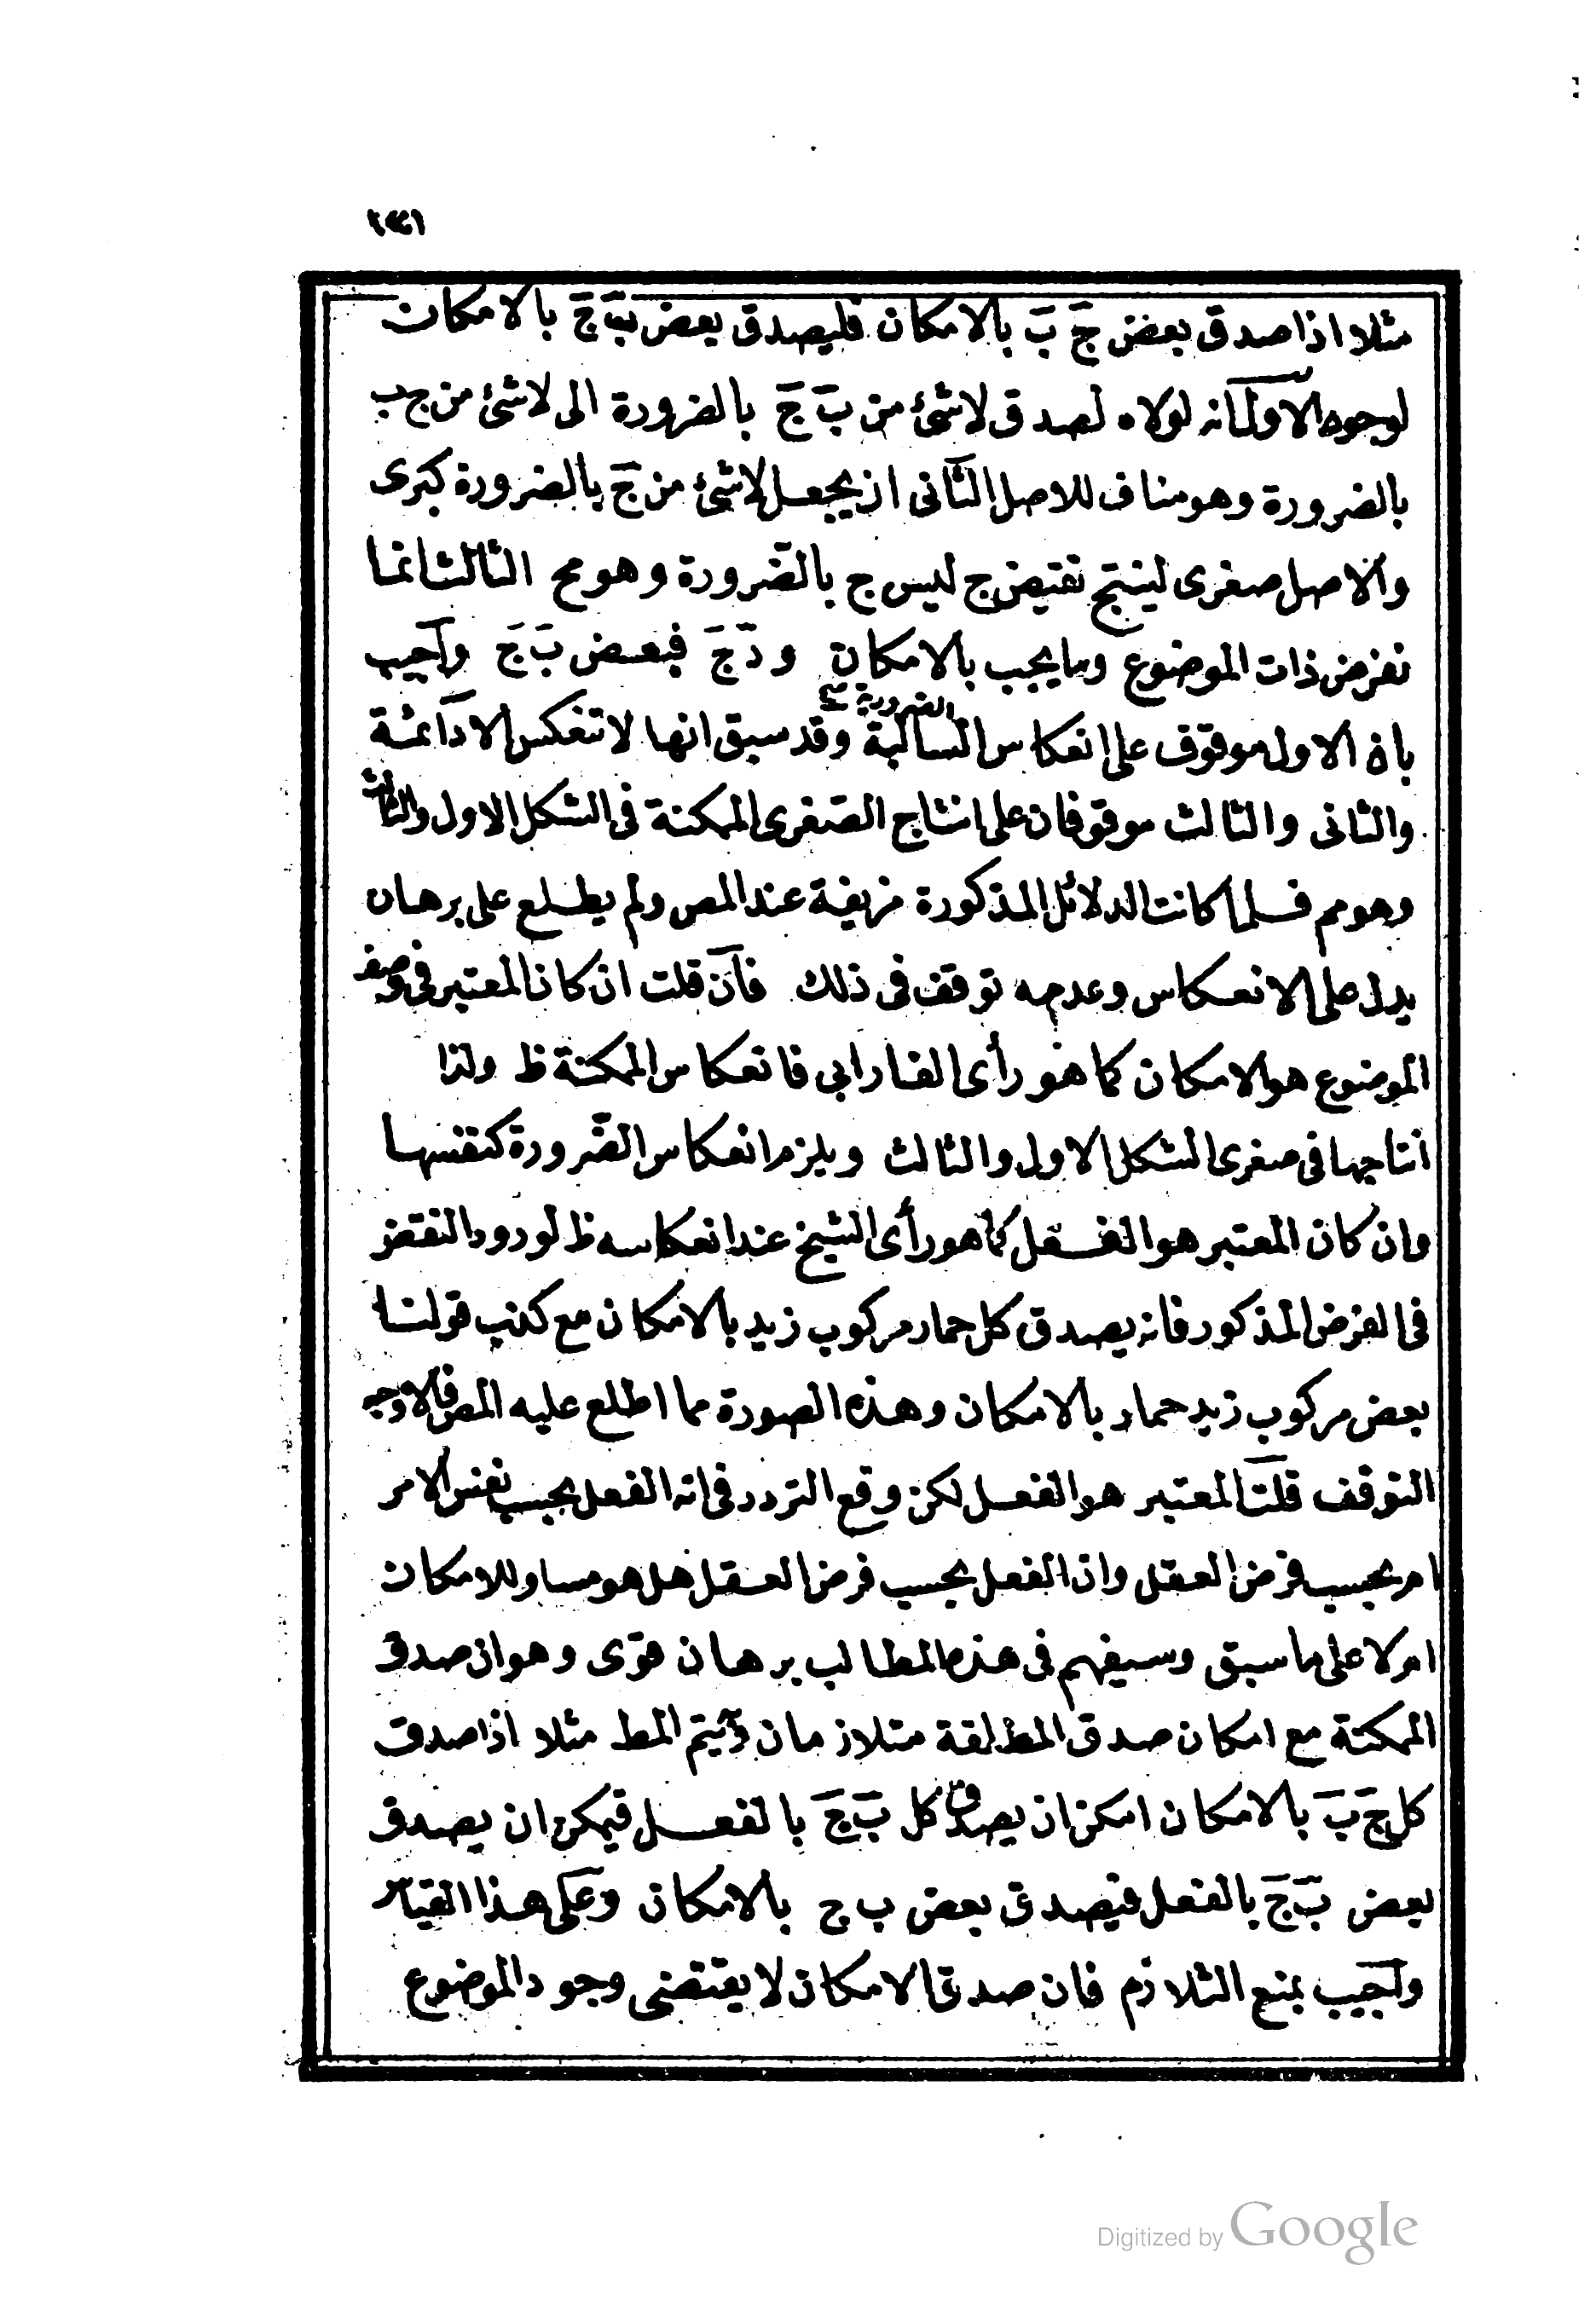 مثلا اذا صدق بعض ج ب بالامكان فليصدق بعض ب ج بالامكان
لوجوه الاول انه لولاه لصدق لاشئ من ب ج بالضرورة الى لاشئ من ج ب
بالضرورة وهو مناف للاصل الثانى ان يجعل لاشئ من ج بالضرورة كبرى
والاصل صغرى لينتج نقيض ج ليس ج بالضرورة وهو مح الثالث انما
نفرض ذات الموضوع وما يجب بالامكان و د ج فبعض ب ج واجيب
بان الاول موقوف على انعكاس السالبة الضرورية وقد سبق انها لا تنعكس الا دائمة
والثانى والثالث موقوفان على انتاج الصغرى الممكنة فى الشكل الاول والثالث
وهو مم فلما كانت الدلائل المذكورة مزيفة عند المص ولم يطلع على برهان
يدل على الانعكاس وعدمه توقف فى ذلك فان قلت ان كان المعتبر فى وصف
الموضوع هو الامكان كما هو رأى الفارابى فانعكاس الممكنة ظ ولذا
انتاجها فى صغرى الشكل الاول والثالث ويلزم انعكاس الضرورة كنفسها
وان كان المعتبر هو الفعل كما هو رأى الشيخ عند انعكاسه ظ لورود النقض
فى الفرض المذكور فانه يصدق كل حمار مركوب زيد بالامكان مع كذب قولنا
بعض مركوب زيد حمار بالامكان وهذه الصورة مما اطلع عليه المص فلا وجه
التوقف قلت المعتبر هو الفعل لكن وقع التردد فى انه الفعل بحسب نفس الامر
ام بحسب فرض العقل وان الفعل بحسب فرض العقل هل هو مساو للامكان
ام لا على ما سبق وسيفهم فى هذه المطالب برهان قوى وهو ان صدق
الممكنة مع امكان صدق المطلقة متلازمان وبه يتم المط مثلا اذا صدق
كل ج ب بالامكان امكن ان يصدق كل ب ج بالفعل فيمكن ان يصدق
بعض ب ج بالفعل فيصدق بعض ب ج بالامكان وعلى هذا القياس
واجيب بمنع التلازم فان صدق الامكان لا يقتضى وجود الموضوع
Digitized by Google